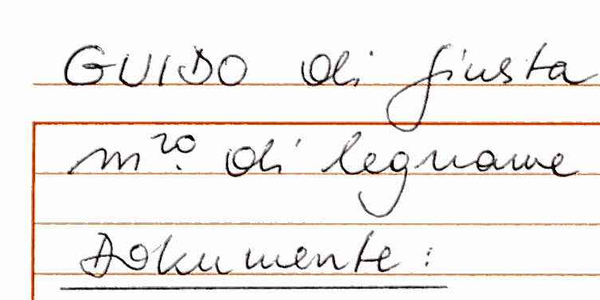 GUIDO di giusta
m^ro. di legname
Dokumente: